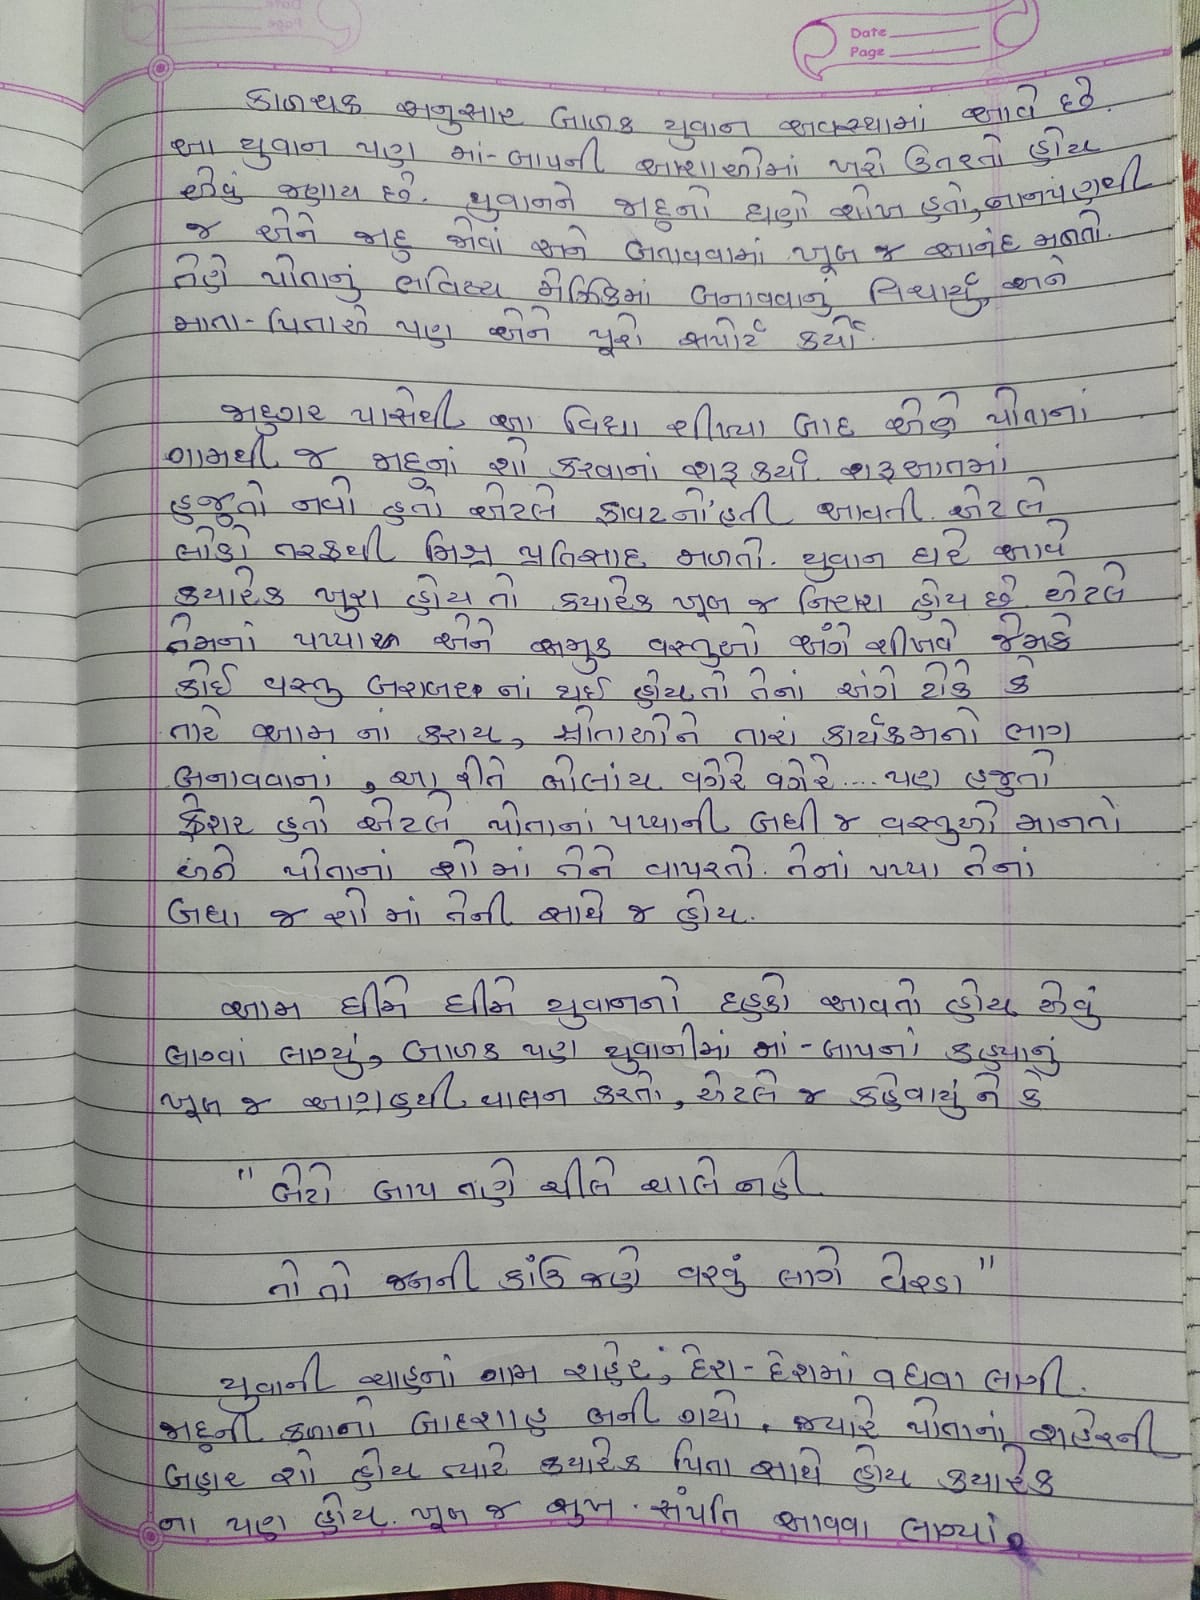 Date
Page
કાળચક્ર અનુસાર બાળક યુવાન અવસ્થામાં આવે છે.
આ યુવાન પણ માં-બાપની આશાઓમાં ખરો ઉતરતો હોય
એવું જણાય છે. યુવાનને જાદુનો ઘણો શોખ હતો, નાનપણથી
જ એને જાદુ જોવાં અને બતાવવામાં ખૂબ જ આનંદ મળતો.
તેણે પોતાનું ભવિષ્ય મેજિકમાં બનાવવાનું વિચાર્યું, અને
માતા-પિતાએ પણ એને પૂરો સપોર્ટ કર્યો.
જાદુગર પાસેથી આ વિદ્યા શીખ્યા બાદ એણે પોતાનાં
ગામથી જ જાદુનાં શો કરવાનાં શરૂ કર્યાં. શરૂઆતમાં
હજુતો નવો હતો એટલે ફાવટ નો'હતી આવતી. એટલે
લોકો તરફથી મિશ્ર પ્રતિસાદ મળતો. યુવાન ઘરે આવે
ક્યારેક ખુશ હોય તો ક્યારેક ખૂબ જ નિરાશ હોય છે. એટલે
તેમનાં પપ્પા એને અમુક વસ્તુઓ અંગે શીખવે જેમકે
કોઈ વસ્તુ બરાબર નાં થઈ હોય તો તેનાં અંગે ટોકે કે
તારે આમ નાં કરાય, શ્રોતાઓને તારાં કાર્યક્રમનો ભાગ
બનાવવાનાં, આ રીતે બોલાય વગેરે વગેરે.... પણ હજુતો
ફ્રેશર હતો એટલે પોતાનાં પપ્પાની બધી જ વસ્તુઓ માનતો
અને પોતાનાં શો માં તેને વાપરતો. તેનાં પપ્પા તેનાં
બધા જ શો માં તેની સાથે જ હોય.
આમ ધીમે ધીમે યુવાનનો દહકો આવતો હોય એવું
લાગવાં લાગ્યું, બાળક પણ યુવાનીમાં માં-બાપનાં કહ્યાનું
ખૂબ જ આગ્રહથી પાલન કરતો, એટલે જ કહેવાયું ને કે
"બેટો બાપ તણે ચીલે ચાલે નહી
તો તો જનની કાંઉ જણે વરવું લાગે વેરડા"
યુવાની ચાહનાં ગામ શહેર, દેશ-દેશમાં વધવા લાગી.
જાદુની કળાનો બાદશાહ બની ગયો. જ્યારે પોતાનાં શહેરની
બહાર શો હોય ત્યારે ક્યારેક પિતા સાથે હોય ક્યારેક
ના પણ હોય. ખૂબ જ સુખ. સંપતિ આવવા લાગ્યાં.